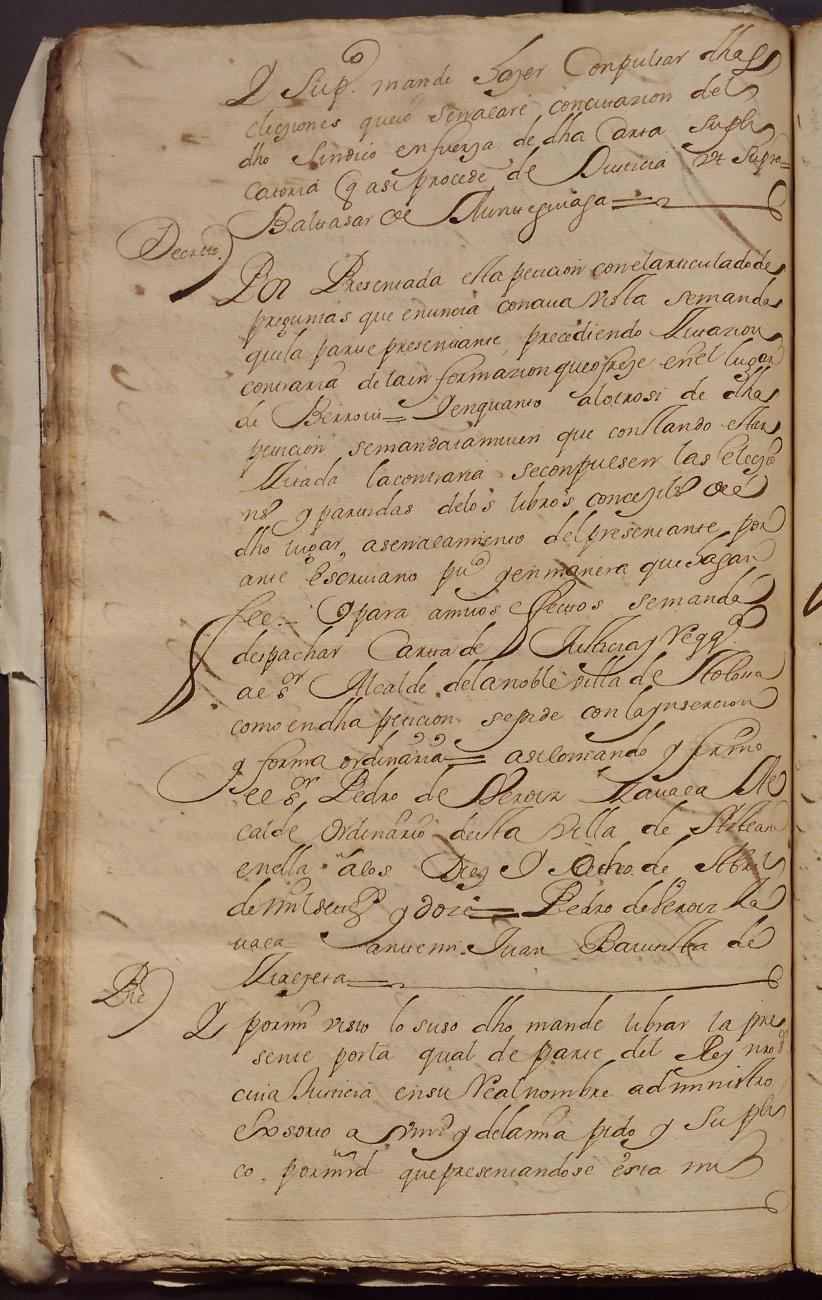 Y Sup.co mande hazer Conpulsar dhas
eleziones que io señalare con citazion del
dho Sindico en fuerza de dha Carta Supli
catoria q asi procede de Justicia Vt Supra=
Baltasar de Munteguiaga=
Decreto.
Por Presentada esta peticion con el articulado de
preguntas que enuncia con cuia vista se manda
que la parte presentante, precediendo Zitazion
contraria de la informazion que ofreze en el lugar
de Berroiu= Y en quanto al otrosi de dha
peticion se manda tamvien que constando estar
Zitada la contraria se conpulsen las elecçio
ns y partidas de los libros concejils de el
dho lugar, a señalamiento del presentante por
ante escrivano pu.co y en manera que hagan
fee.= Y para amvos efectos se manda
despachar Carta de Justicia y Regq.a
ae sr Alcalde de la noble villa de Tolosa
como en dha peticion se pide con la ynsercion
y forma ordinaria= asi lo mando y firmo
ee sr Pedro de Veroiz Zavala Al
calde Ordinario desta Villa de Ateaun
en ella a los Diez Y Ocho de Abril
de mil setez.s y doze= Pedro de Veroiz Za
vala ante mi. Juan Bautista de
Zialzeta=
Pne
Y por mi visto lo suso dho mande librar la pre
sente por la qual de parte del Rey nro sr
cuia Justicia en su Real nombre administro
Exsorto a Vmd y de la mia pido y Supli
co. por mrd que presentandose esta mi